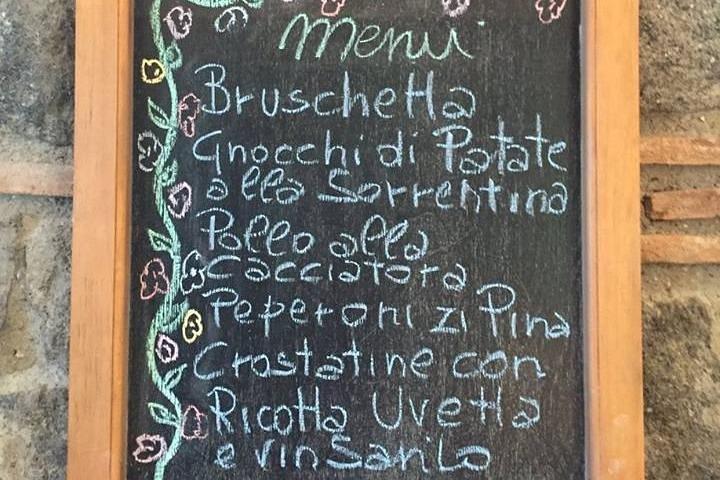 menù
Bruschetta
Gnocchi di Patate
alla Sorrentina
Pollo alla
Cacciatora
Peperoni zi Pina
Crostatine con
Ricotta Uvetta
e vin Santo